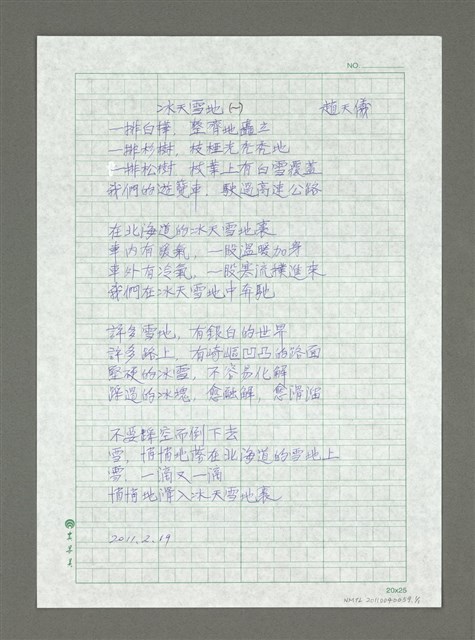 NO.
冰天雪地(一) 趙天儀
一排白樺，整齊地矗立
一排杉樹，枝椏光禿禿地
一排松樹，枝葉上有白雪覆蓋
我們的遊覽車，駛過高速公路
在北海道的冰天雪地裏
車內有暖氣，一股溫暖加身
車外有冷氣，一股寒流撲進來
我們在冰天雪地中奔馳
許多雪地，有銀白的世界
許多路上，有崎嶇凹凸的路面
堅硬的冰雪，不容易化解
踩過的冰塊，愈融解，愈滑溜
不要踩空而倒下去
雪，悄悄地落在北海道的雪地上
雪，一滴又一滴
悄悄地滑入冰天雪地裏
2011.2.19
20x25